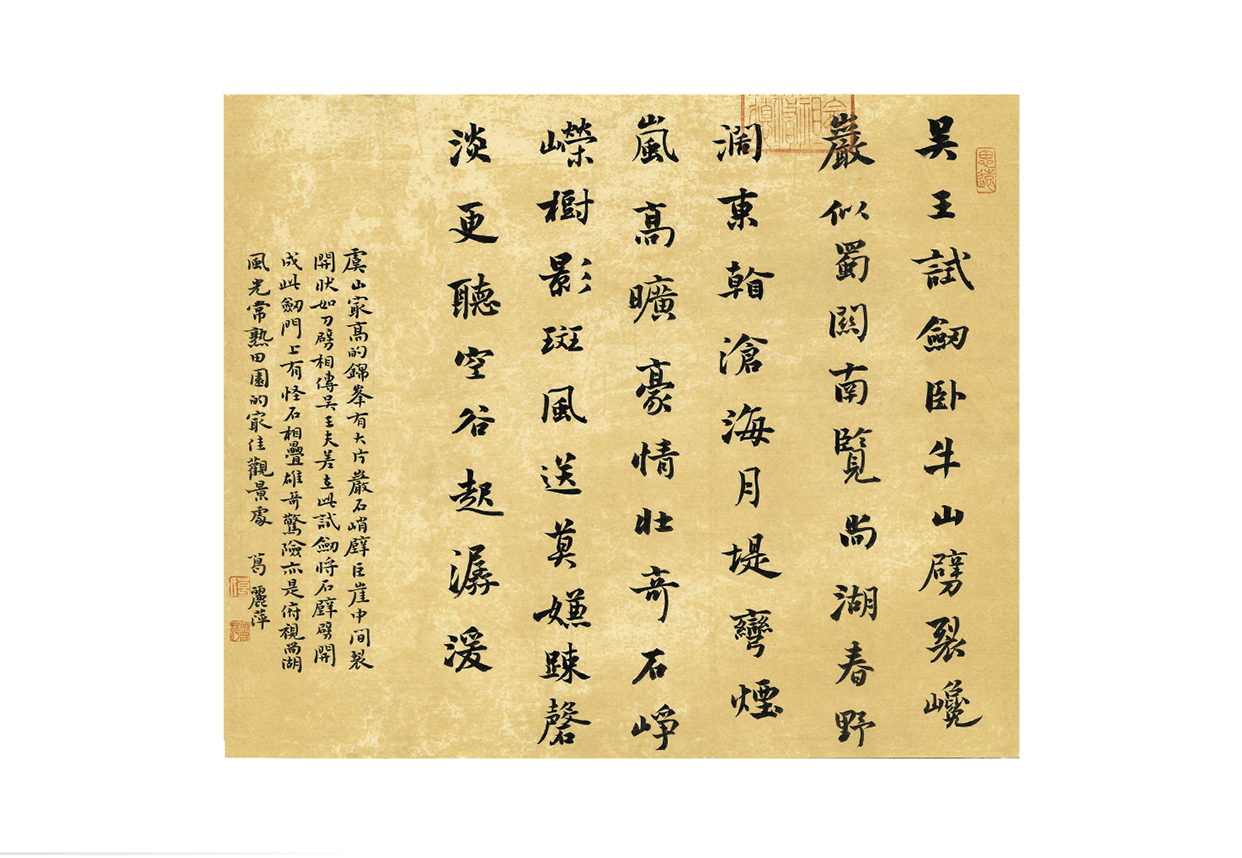 吴王試劒卧牛山劈裂巉
巖似蜀闕南覽尚湖春野
濶東翰滄海月堤彎煙
嵐高曠豪情壯奇石崢
嶸樹影斑風送莫嫌踈磬
淡更聽空谷起潺湲
虞山最高的錦峯有大片巖石峭壁巨崖中間裂
開狀如刀劈相傳吴王夫差在此試劒將石壁劈開
成此劒門上有怪石相疊雄奇驚險亦是俯視尚湖
風光常熟田園的最佳觀景處 葛麗萍
思遠